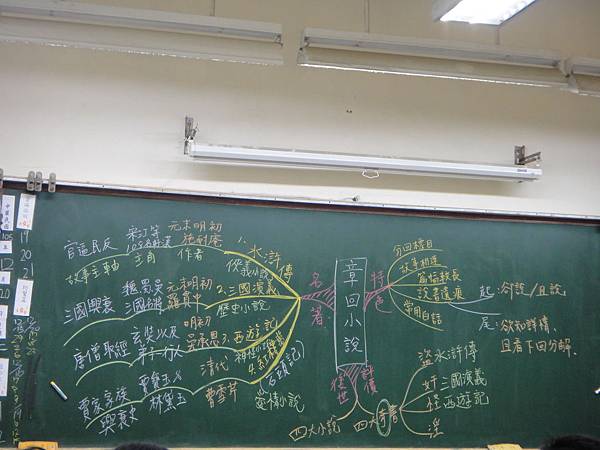 章回小說
名著
1. 水滸傳
俠義小說
元末明初
施耐庵
作者
宋江等
108名好漢
主角
官逼民反
故事主軸
2. 三國演義
歷史小說
元末明初
羅貫中
魏蜀吳
三國英雄
三國興衰
3. 西遊記
神怪小說
明初
吳承恩
玄奘以及
唐僧取經
4. 紅樓夢
(石頭記)
愛情小說
清代
曹雪芹
賈寶玉&
林黛玉
賈家家族
興衰史
特色
分回標目
故事相連
篇幅較長
說書遺痕
常用白話
起:卻說/且說
尾:欲知詳情,
且看下回分解.
評價
四大奇書
四大小說
盜 水滸傳
奸 三國演義
怪 西遊記
淫
19
20
21